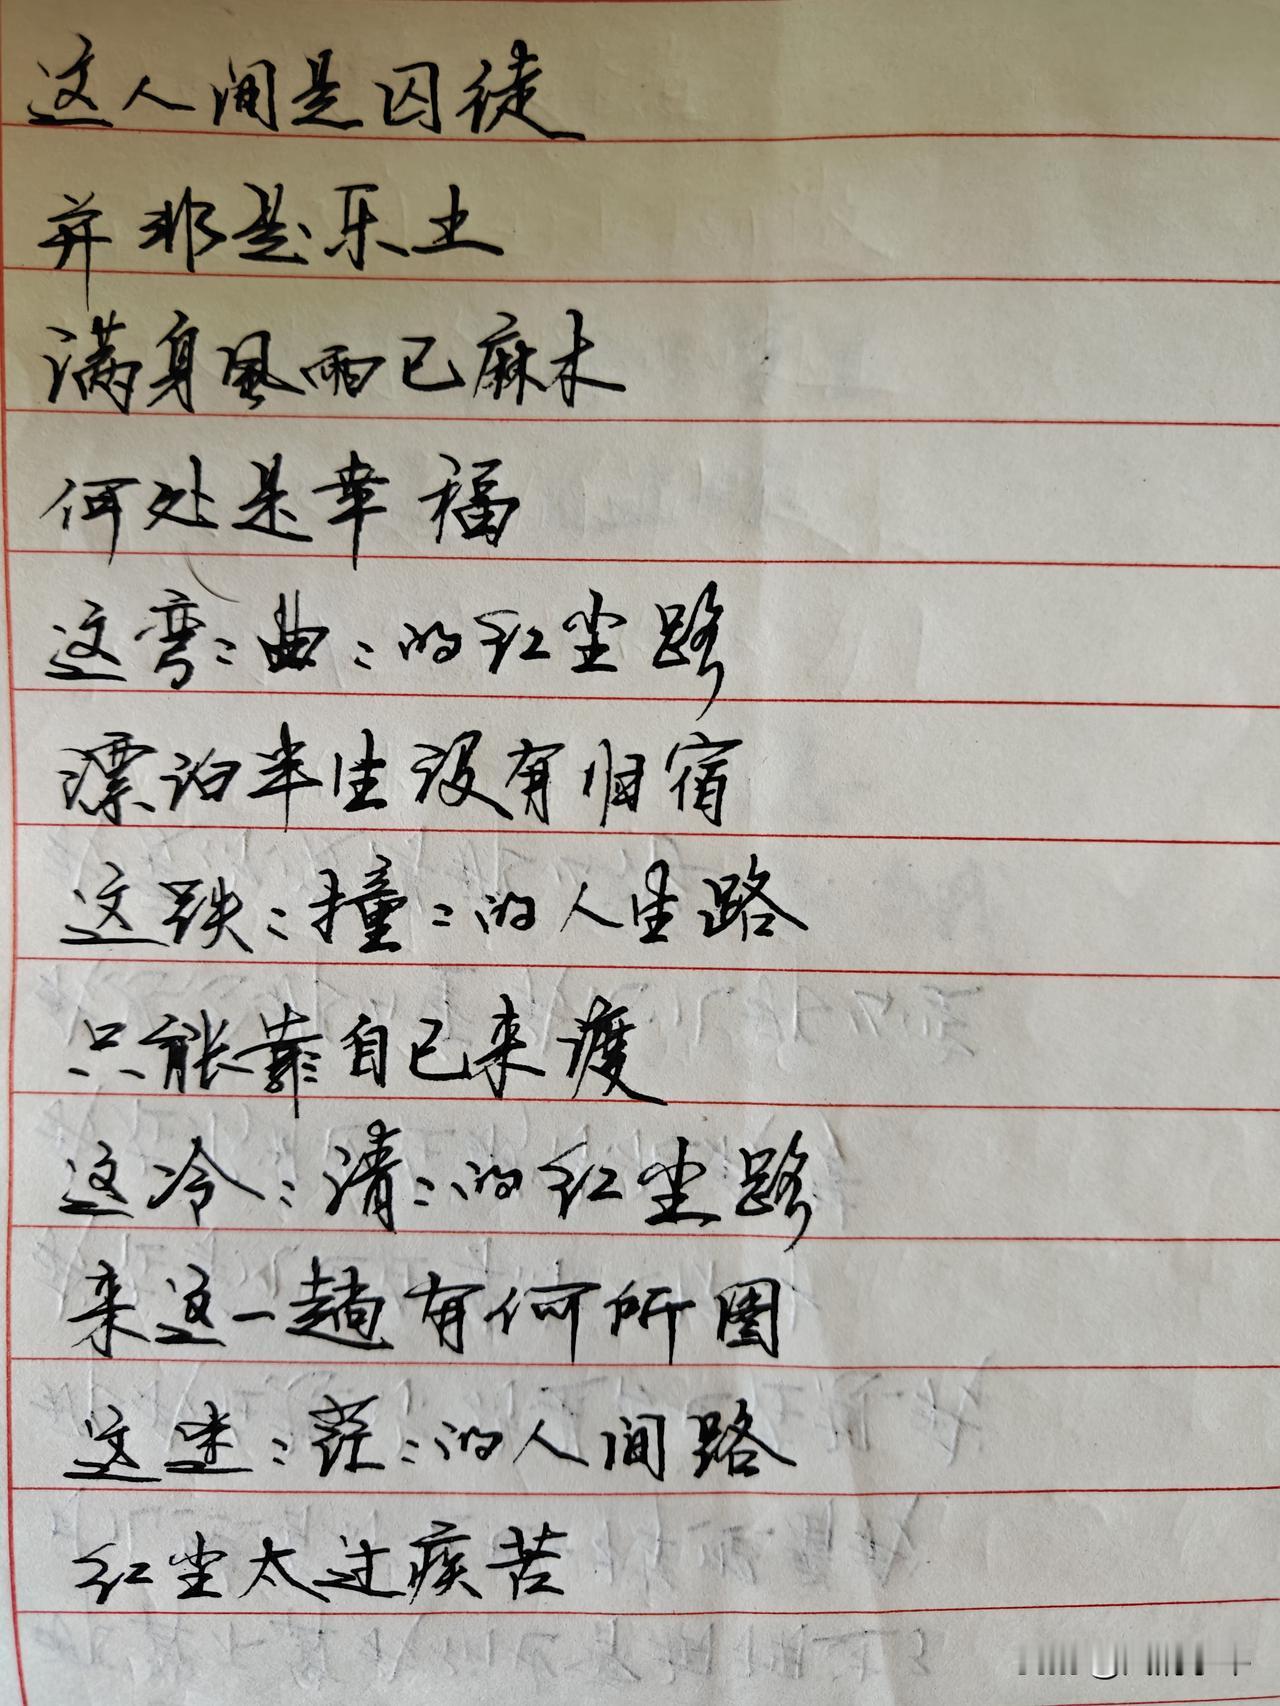 这人间是囚徒
并非是乐土
满身风雨已麻木
何处是幸福
这弯:曲:的红尘路
漂泊半生没有归宿
这跌:撞:的人生路
只能靠自己来渡
这冷:清:的红尘路
来这一趟有何所图
这迷:茫:的人间路
红尘太过疾苦